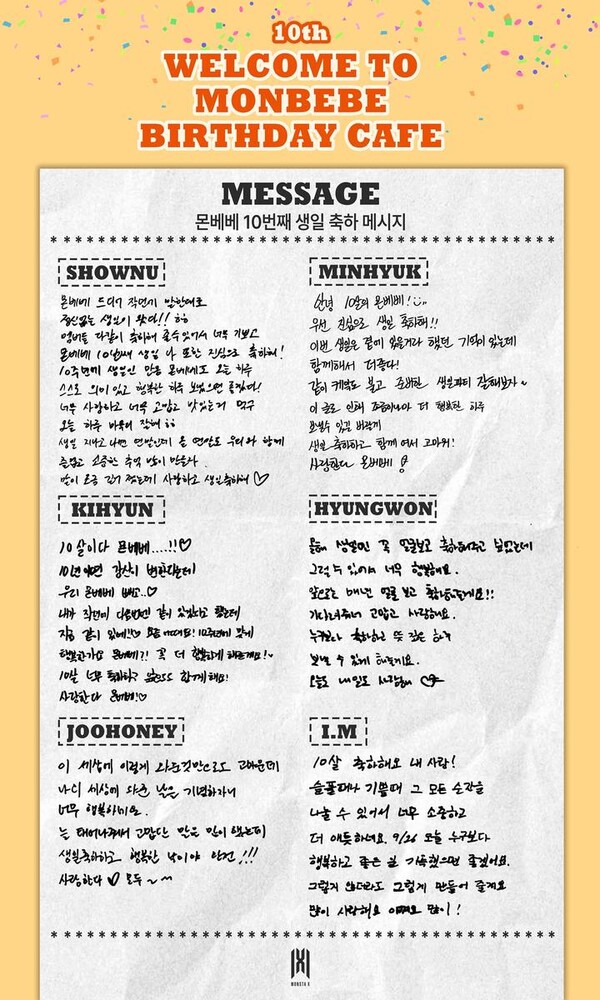 10th
WELCOME TO
MONBEBE
BIRTHDAY CAFE
MESSAGE
몬베베 10번째 생일 축하 메시지
SHOWNU
몬베베 드디어 작년에 말한대로
생일이 왔다!! ㅎㅎ
멤버들 다같이 축하해 줄수있어서 너무 기쁘고
몬베베 10번째 생일 나 또한 진심으로 축하해!
10주년에 생일인 만큼 몬베베도 오늘 하루
스스로 의미 있고 행복한 하루 보냈으면 좋겠다!
너무 사랑하고 너무 고맙고 맛있는거 먹구
오늘 하루 마무리 잘해
생일 지나고 나면 연말인데 올 연말도 우리와 함께
즐겁고 소중한 추억 많이 만들자.
말이 조금 길어 졌는데 사랑하고 생일축하해 ♡
MINHYUK
안녕 10살의 몬베베!
우선 진심으로 생일 축하해!!
이번 생일은 곁에 있을거라 했던 기억이 있는데
함께해서 더좋다!
같이 케익도 불고 준비한 생일파티 잘해보자~
이 글로 인해 조금이나마 더 행복한 하루
보낼수 있길 바랄게
생일 축하하고 함께 여서 고마워!
사랑한다 몬베베
KIHYUN
10살이다 몬베베....!!♡
10년이면 강산이 변한다는데
우리 몬베베 ..♡
내가 작년에 다음번엔 같이 있겠다고 했는데
지금 같이 있네!!♡ 오늘 어때요! 10주년에 맞게
행복한가요 몬베베?! 꼭 더 행복하게 해줄게요!
10살 너무 축하하구 앞으로도 함께해요!
사랑한다 몬베베!♡
HYUNGWON
올해 생일엔 꼭 얼굴보고 축하해주고 싶었는데
그럴 수 있어서 너무 행복해요.
앞으로는 매년 얼굴 보고 축하해줄게요!!
기다려줘서 고맙고 사랑해요.
누구보다 축하하고 뜻 깊은 하루
보낼 수 있게 해줄게요.
오늘도 내일도 사랑해 ♡
JOOHONEY
이 세상에 이렇게 와준것만으로도 고마운데
나의 세상에 와준 날을 기념하자니
너무 행복하네요.
늘 태어나줘서 고맙단 말을 많이 했는데
생일축하하고 행복한 날이야 완전 !!!
사랑한다 ♡ 모두 ~~
I.M
10살 축하해요 내 사람!
슬플때나 기쁠때 그 모든 순간을
나눌 수 있어서 너무 소중하고
더 애틋하네요. 9/26 오늘 누구보다
행복하고 좋은 일 가득했으면 좋겠어요.
그렇지 않더라도 그렇게 만들어 줄게요
많이 사랑해요 아껴요 많이!
MONSTA X